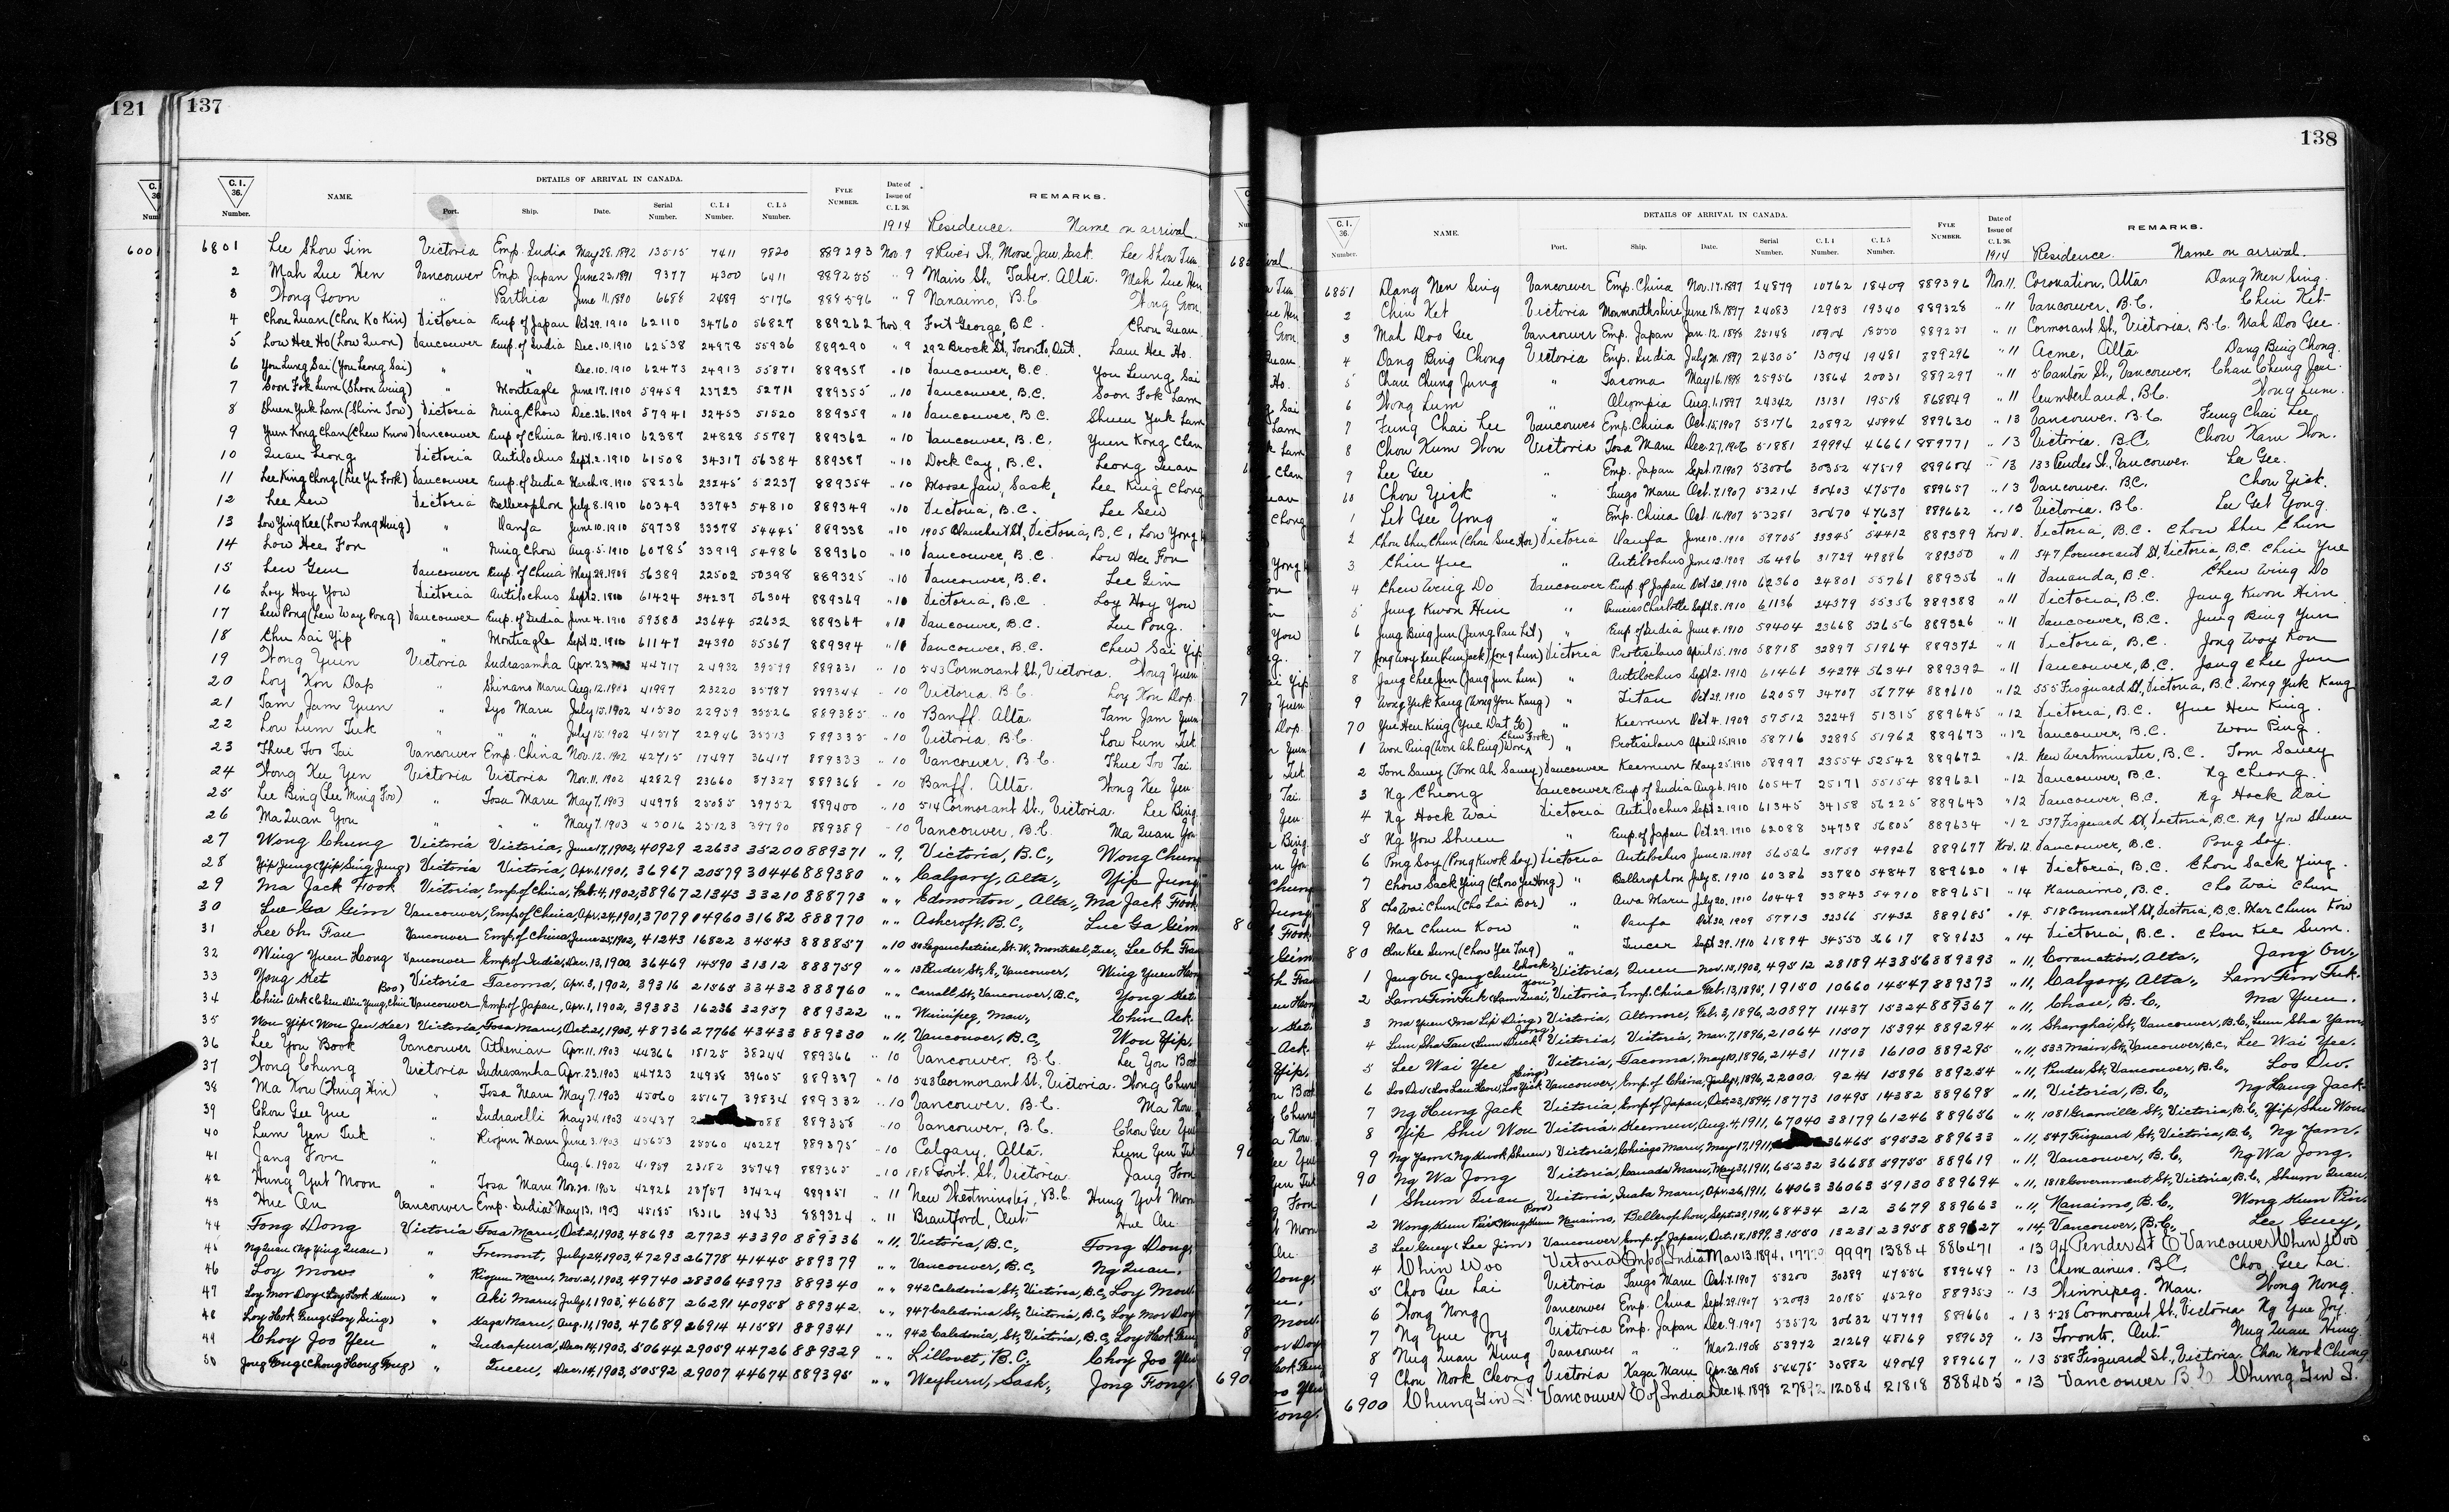 121 137
C. I. 36. Number. NAME. DETAILS OF ARRIVAL IN CANADA. Port. Ship. Date. Serial Number. C. I. 4 Number. C. I. 5 Number. FYLE NUMBER. Date of Issue of C. I. 36. REMARKS.
1914 Residence. Name on arrival.
6801 Lee Show Tim Victoria Emp. India May 28. 1892 13515 7411 9820 889293 Nov. 9 9 River St, Moose Jaw, Sask. Lee Show Tim
2 Mah Que Hen Vancouver Emp. Japan June 23. 1891 9377 4300 6411 889255 " 9 Main St., Taber, Alta. Mah Que Hen
3 Wong Goon " Parthia June 11. 1890 6688 2489 5176 889596 " 9 Nanaimo, B.C. Wong Gon
4 Chou Quan (Chou Ko Kin) Victoria Emp of Japan Oct 29. 1910 62110 34760 56827 889262 Nov. 9 Fort George, B.C. Chou Quan
5 Low Hee Ho (Low Quon) Vancouver Emp. of India Dec. 10. 1910 62538 24978 55936 889290 " 9 292 Brock St, Toronto, Ont. Lau Hee Ho
6 You Lung Sai (You Leong Sai) " " Dec. 10. 1910 62473 24913 55871 889357 " 10 Vancouver, B.C. You Leung Sai
7 Soon Fok Lum (Shoon Wing) " Monteagle June 19. 1910 59459 23723 52711 889355 " 10 Vancouver, B.C. Soon Fok Lam
8 Shuen Yuk Lam (Shim Tow) Victoria Ning Chow Dec. 26. 1909 57941 32453 51520 889359 " 10 Vancouver, B.C. Shuen Yuk Lam
9 Yuen Kong Chan (Chew Know) Vancouver Emp of China Nov. 18. 1910 62387 24828 55787 889362 " 10 Vancouver, B.C. Yuen Kong Chan
10 Quan Leong Victoria Antilochus Sept. 2. 1910 61508 34317 56384 889387 " 10 Dock Cay, B.C. Leong Quan
11 Lee King Chong (Lee Yu Fook) Vancouver Emp. of India March 18. 1910 58236 23245 52237 889354 " 10 Moose Jaw, Sask. Lee King Chong
12 Lee Sew Victoria Bellerophon July 8. 1910 60349 33743 54810 889349 " 10 Victoria, B.C. Lee Sew
13 Low Ying Kee (Low Long Hing) " Oanfa June 10. 1910 59738 33378 54445 889338 " 10 1905 Blanchard St, Victoria, B.C. Low Yong
14 Low Hee Fon " Ning Chow Aug. 5. 1910 60785 33919 54986 889360 " 10 Vancouver, B.C. Low Hee Fon
15 Lew Gem Vancouver Emp. of China May 29. 1909 56389 22502 50398 889325 " 10 Vancouver, B.C. Lee Gim
16 Loy Hoy You Victoria Antilochus Sept 2. 1910 61424 34237 56304 889369 " 10 Victoria, B.C. Loy Hoy You
17 Lew Pong (Lew Way Pong) Vancouver Emp. of India June 4. 1910 59380 23644 52632 889364 " 10 Vancouver, B.C. Lew Pong
18 Chu Sai Yip " Monteagle Sept. 13. 1910 61147 24390 55367 889394 " 10 Vancouver, B.C. Chew Sai Yip
19 Wong Yuen Victoria Indrasamha Apr. 23 44717 24932 39599 889331 " 10 543 Cormorant St, Victoria. Wong Yuen
20 Loy Kon Dap " Shinano Maru Aug. 12. 1902 41997 23220 35787 889344 " 10 Victoria. B.C. Loy Kon Dop
21 Tam Jam Yuen " Iyo Maru July 15. 1902 41530 22959 35526 889385 " 10 Banff. Alta. Tam Jam Yuen
22 Low Lum Tuk " " July 15. 1902 41517 22946 35513 889335 " 10 Victoria. B.C. Low Lum Tuk
23 Thue Foo Tai Vancouver Emp. China Nov. 12. 1902 42715 17497 36417 889333 " 10 Vancouver, B.C. Thue Foo Tai
24 Wong Kee Yen Victoria Victoria Nov. 11. 1902 42829 23660 37327 889368 " 10 Banff. Alta. Wong Kee Yen
25 Lee Bing (Lee Ming Foo) " Tosa Maru May 7. 1903 44978 25085 39752 889400 " 10 514 Cormorant St., Victoria. Lee Bing
26 Ma Quan You " " May 7. 1903 45016 25123 39790 889389 " 10 Vancouver, B.C. Ma Quan You
27 Wong Chung Victoria Victoria, June 17, 1902, 40929 22633 35200 889371 " 9, Victoria, B.C., Wong Chung
28 Yip Jung (Yip Sing Jung) Victoria Victoria, Apr. 1, 1901, 36967 20579 30446 889380 " " Calgary, Alta., Yip Jung
29 Ma Jack Fook Victoria, Emp of China, Feb. 4, 1902, 38967 21343 33210 888773 " " Edmonton, Alta., Ma Jack Fook
30 Lue Ga Gim Vancouver, Emp of China, Apr. 24, 1901, 37079 14960 31682 888770 " " Ashcroft, B.C., Lue Ga Gim
31 Lee Oh Fau Vancouver Emp. of China, June 25, 1902, 41243 16822 34543 888857 " 10 50 Lagauchetiere St. W., Montreal, Que., Lee Oh Fau
32 Wing Yuen Hong Vancouver Emp of India, Dec. 13, 1900 36469 14590 31312 888759 " " 13 Pender St, E., Vancouver, Wing Yuen Hong
33 Yong Set Victoria Tacoma, Apr. 3, 1902, 39316 21565 33432 888760 " " Carrall St., Vancouver, B.C., Yong Set
34 Chin Ark (Chen Din Yung, Chin Boo) Vancouver Emp. of Japan, Apr. 1, 1902, 39383 16236 32957 889322 " " Winnipeg, Man., Chin Ack
35 Wou Yip (Wou Jew Kee) Victoria, Tosa Maru, Oct. 21, 1903, 48736 27766 43433 889330 " 11, Vancouver, B.C., Wou Yip
36 Lee You Book Vancouver Athenian Apr. 11. 1903 44366 18125 38244 889366 " 10 Vancouver. B.C. Lee You Book
37 Wong Chung Victoria Indrasamha Apr. 23. 1903 44723 24938 39605 889337 " 10 543 Cormorant St., Victoria. Wong Chung
38 Ma Kow (Thing Hin) " Tosa Maru May 7. 1903 45060 25167 39834 889332 " 10 Vancouver. B.C. Ma Kow
39 Chou Gee Yue " Indravelli May 24. 1903 45437 2 088 889358 " 10 Vancouver, B.C. Chou Gee Yue
40 Lum Yen Tuk " Riojun Maru June 3. 1903 45653 25560 40227 889375 " 10 Calgary. Alta. Lum Yen Tuk
41 Jang Foon " Aug. 6. 1902 41959 23182 35749 889365 " 10 1818 Govt. St. Victoria. Jang Foon
42 Hung Yut Moon " Tosa Maru Nov. 20. 1902 42926 23757 37424 889351 " 11 New Westminster, B.C. Hung Yut Moon
43 Hue Au Vancouver Emp. India May 13. 1903 45185 18316 38433 889324 " 11 Brantford, Ont. Hue Au
44 Tong Dong Victoria Tosa Maru, Oct. 21, 1903, 48693 27723 43390 889336 " 11, Victoria, B.C., Tong Dong
45 Ng Quan (Ng Ying Quan) " Tremont, July 24, 1903, 47293 26778 41445 889379 " " Vancouver, B.C., Ng Quan
46 Loy Mow " Riojun Maru, Nov. 21, 1903, 49740 28306 43973 889340 " " 942 Caledonia St., Victoria, B.C., Loy Mow
47 Loy Mor Doy (Loy Hook Shun) " Aki Maru, July 1, 1903, 46687 26291 40958 889342 " " 947 Caledonia St., Victoria, B.C., Loy Mor Doy
48 Loy Hok Fung (Loy Sing) " Kaga Maru, Aug. 11, 1903, 47689 26914 41581 889341 " " 942 Caledonia, St., Victoria, B.C., Loy Hok Fung
49 Choy Joo Yen " Indrapura, Dec. 14, 1903, 50644 29059 44726 889329 " " Lillooet, B.C., Choy Joo Yen
50 Jong Fong (Chong Hong Fong) " Queen, Dec. 14, 1903, 50592 29007 44674 889395 " " Weyburn, Sask., Jong Fong
138
C. I. 36. Number. NAME. DETAILS OF ARRIVAL IN CANADA. Port. Ship. Date. Serial Number. C. I. 4 Number. C. I. 5 Number. FYLE NUMBER. Date of Issue of C. I. 36. REMARKS.
1914 Residence. Name on arrival.
6851 Dang Men Sing Vancouver Emp. China Nov. 17. 1897 24879 10762 18409 889396 Nov. 11. Coronation, Alta. Dang Men Sing.
2 Chin Ket Victoria Monmouthshire June 18. 1897 24083 12953 19340 889328 " 11 Vancouver, B.C. Chin Ket
3 Mah Doo Gee Vancouver Emp. Japan Jan. 12. 1898 25148 10904 18550 889251 " 11 Cormorant St., Victoria. B.C. Mah Doo Gee.
4 Dang Bing Chong Victoria Emp. India July 20. 1897 24305 13094 19481 889296 " 11 Acme, Alta. Dang Bing Chong.
5 Chau Chung Jung " Tacoma May 16. 1898 25956 13864 20031 889297 " 11 5 Canton St., Vancouver. Chau Chung Jen.
6 Wong Lum " Olympia Aug. 1. 1897 24342 13131 19518 868849 " 11 Cumberland, B.C. Wong Lum.
7 Fung Chai Lee Vancouver Emp. China Oct. 15. 1907 53176 20892 45994 889630 " 13 Vancouver. B.C. Fung Chai Lee
8 Chow Kum Won Victoria Tosa Maru Dec. 27. 1906 51881 29994 46661 889771 " 13 Victoria. B.C. Chow Kam Won.
9 Lee Gee " Emp. Japan Sept. 17. 1907 53006 30352 47519 889604 " 13 133 Pender St., Vancouver. Lee Gee.
60 Chou Yick " Tango Maru Oct. 7. 1907 53214 30403 47570 889657 " 13 Vancouver. B.C. Chou Yick.
1 Let Gee Yong " Emp. China Oct. 16. 1907 53281 30470 47637 889662 " 13 Victoria. B.C. Lee Get Yong.
2 Chou Shu Chun (Chou Sue Hor) Victoria Oanfa June 10. 1910 59705 33345 54412 889399 Nov 11. Victoria, B.C. Chow Shu Chun
3 Chin Yue " Antilochus June 12. 1909 56496 31729 49896 889350 " 11 547 Cormorant St, Victoria, B.C. Chin Yue
4 Chew Wing Do Vancouver Emp. of Japan Oct 20. 1910 62360 24801 55761 889356 " 11 Vananda, B.C. Chew Wing Do
5 Jung Kwon Him " Princess Charlotte Sept. 8. 1910 61136 24379 55356 889388 " 11 Victoria, B.C. Jung Kwon Him
6 Jung Bing Jun (Jung Pau Lit) " Emp. of India June 4. 1910 59404 23668 52656 889326 " 11 Vancouver, B.C. Jung Bing Yun
7 Victoria Protesilaus April 15. 1910 58718 32897 51964 889372 " 11 Victoria, B.C. Jong Woy Kon
8 Jang Chee Jun (Jang Jun Lun) " Antilochus Sept 2. 1910 61466 34274 56341 889392 " 11 Vancouver, B.C. Jang Chee Jun
9 Wong Yuk Kang (Wong You Kang) " Titan Oct 29. 1910 62057 34707 56774 889610 " 12 555 Fisguard St, Victoria, B.C. Wong Yuk Kang
70 Yue Hen King (Yue Dat Go) " Keemun Oct 4. 1909 57512 32249 51315 889645 " 12 Victoria, B.C. Yue Hen King.
1 Won Ping (Won Ah Ping) Won Chew Fook) " Protesilaus April 15. 1910 58716 32895 51962 889673 " 12 Vancouver, B.C. Won Ping.
2 Tom Sauey (Tom Ah Sauey) Vancouver Keemun May 25. 1910 58997 23554 52542 889672 " 12. New Westminster, B.C. Tom Sauey
3 Ng Cheong Vancouver Emp of India Aug 6. 1910 60547 25171 55154 889621 " 12 Vancouver, B.C. Ng Cheong.
4 Ng Hock Wai Victoria Antilochus Sept 2. 1910 61345 34158 56225 889643 " 12 Vancouver, B.C. Ng Hock Wai
5 Ng You Shuen " Emp. of Japan Oct. 29. 1910 62088 34738 56805 889634 " 12 537 Fisguard St, Victoria, B.C. Ng You Shuen
6 Pong Soy (Pong Kwok Soy) Victoria Antilochus June 12. 1909 56526 31759 49926 889677 Nov. 12. Vancouver, B.C. Pong Soy.
7 Chow Sack Ying (Chow Yee Hong) " Bellerophon July 8. 1910 60386 33780 54847 889620 " 14 Victoria, B.C. Chou Sack Ying.
8 Cho Wai Chun (Cho Lai Bor) " Awa Maru July 20. 1910 60449 33843 54910 889651 " 14 Nanaimo, B.C. Cho Wai Chun
9 Mar Chum Kow " Oanfa Oct 30. 1909 57713 32366 51432 889685 " 14. 518 Cormorant St, Victoria, B.C. Mar Chum Kow
80 Chou Kee Sum (Chou Yee Tong) " Teucer Sept 29. 1910 61894 34550 36617 889623 " 14 Victoria, B.C. Chou Kee Sum.
1 Jang On (Jang Chun Chock) Victoria, Queen Nov. 15, 1903, 49512 28189 43856 889393 " 11, Coronation, Alta., Jang On.
2 Lam Fim Tuk (Lam Quai You) Victoria, Emp. China Feb. 13, 1895, 19150 10660 14547 889373 " 11, Calgary, Alta., Lam Fim Tuk.
3 Ma Yuen (Ma Lip Ding) Victoria, Altmore, Feb. 3, 1896, 20897 11437 15324 889367 " 11, Chase, B.C., Ma Yuen.
4 Lum Sha Yan (Lum Duck Jong) Victoria, Victoria, Mar. 7, 1896, 21064 11507 15394 889294 " 11, Shanghai St., Vancouver, B.C., Lum Sha Yam.
5 Lee Wai Yee Victoria, Tacoma, May 10, 1896, 21431 11713 16100 889295 " 11, 533 Main St., Vancouver, B.C., Lee Wai Yee.
6 Loo Ow (Loo Lau How, Loo Yick Sing) Vancouver, Emp. of China, July 1, 1896, 22000 9241 15896 889254 " 11, Pender St., Vancouver, B.C., Loo Ow.
7 Ng Hung Jack Victoria, Emp. of Japan, Oct. 23, 1894, 18773 10495 14382 889698 " 11, Victoria, B.C., Ng Hung Jack
8 Yip Shu Wou Victoria, Keemun, Aug. 4, 1911, 67040 38179 61246 889656 " 11, 1081 Granville St., Victoria, B.C., Yip Shu Wou
9 Ng Yam (Ng Kwok Shuen) Victoria, Chicago Maru, May 17, 1911, 36465 59532 889633 " 11, 547 Fisguard St., Victoria, B.C., Ng Yam.
90 Ng Wa Jong Victoria, Canada Maru, May 31, 1911, 65232 36688 59755 889619 " 11, Vancouver, B.C., Ng Wa Jong.
1 Shum Quan Victoria, Inaba Maru, Apr. 26, 1911, 64063 36063 59130 889694 " 11, 1818 Government St., Victoria, B.C., Shum Quan.
2 Wong Hum Pin (Wong Hum Poo) Nanaimo, Bellerophon, Sept. 29, 1911, 68434 212 3679 889663 " 11, Nanaimo, B.C., Wong Hum Pin.
3 Lee Guey (Lee Jim) Vancouver Emp. of Japan, Oct. 18, 1899, 31550 13231 23958 889627 " 14, Vancouver, B.C., Lee Guey.
4 Chin Woo Victoria Emp of India Mar 13. 1894, 9997 13884 886471 " 13 94 Pender St E Vancouver Chin Woo
5 Choo Gee Lai Victoria Tango Maru Oct. 7. 1907 53200 30389 47556 889649 " 13 Chemainus. B.C. Choo Gee Lai.
6 Wong Nong Vancouver Emp. China Sept. 29. 1907 52093 20185 45290 889353 " 13 Winnipeg. Man. Wong Nong.
7 Ng Yue Joy Victoria Emp. Japan Dec. 9. 1907 53572 30632 47799 889660 " 13 528 Cormorant St., Victoria. Ng Yue Joy.
8 Nug Quan Hung Vancouver " " Mar 2. 1908 53972 21269 48169 889639 " 13 Toronto. Ont. Nug Quan Hung
9 Chou Mook Cheong Victoria Kaga Maru Apr. 30. 1908 54475 30882 49049 889667 " 13 538 Fisguard St., Victoria. Chou Mook Cheong.
6900 Chung Gin S. Vancouver E of India Dec 14. 1898 27892 12084 21818 888405 " 13 Vancouver B C Chung Gin S.